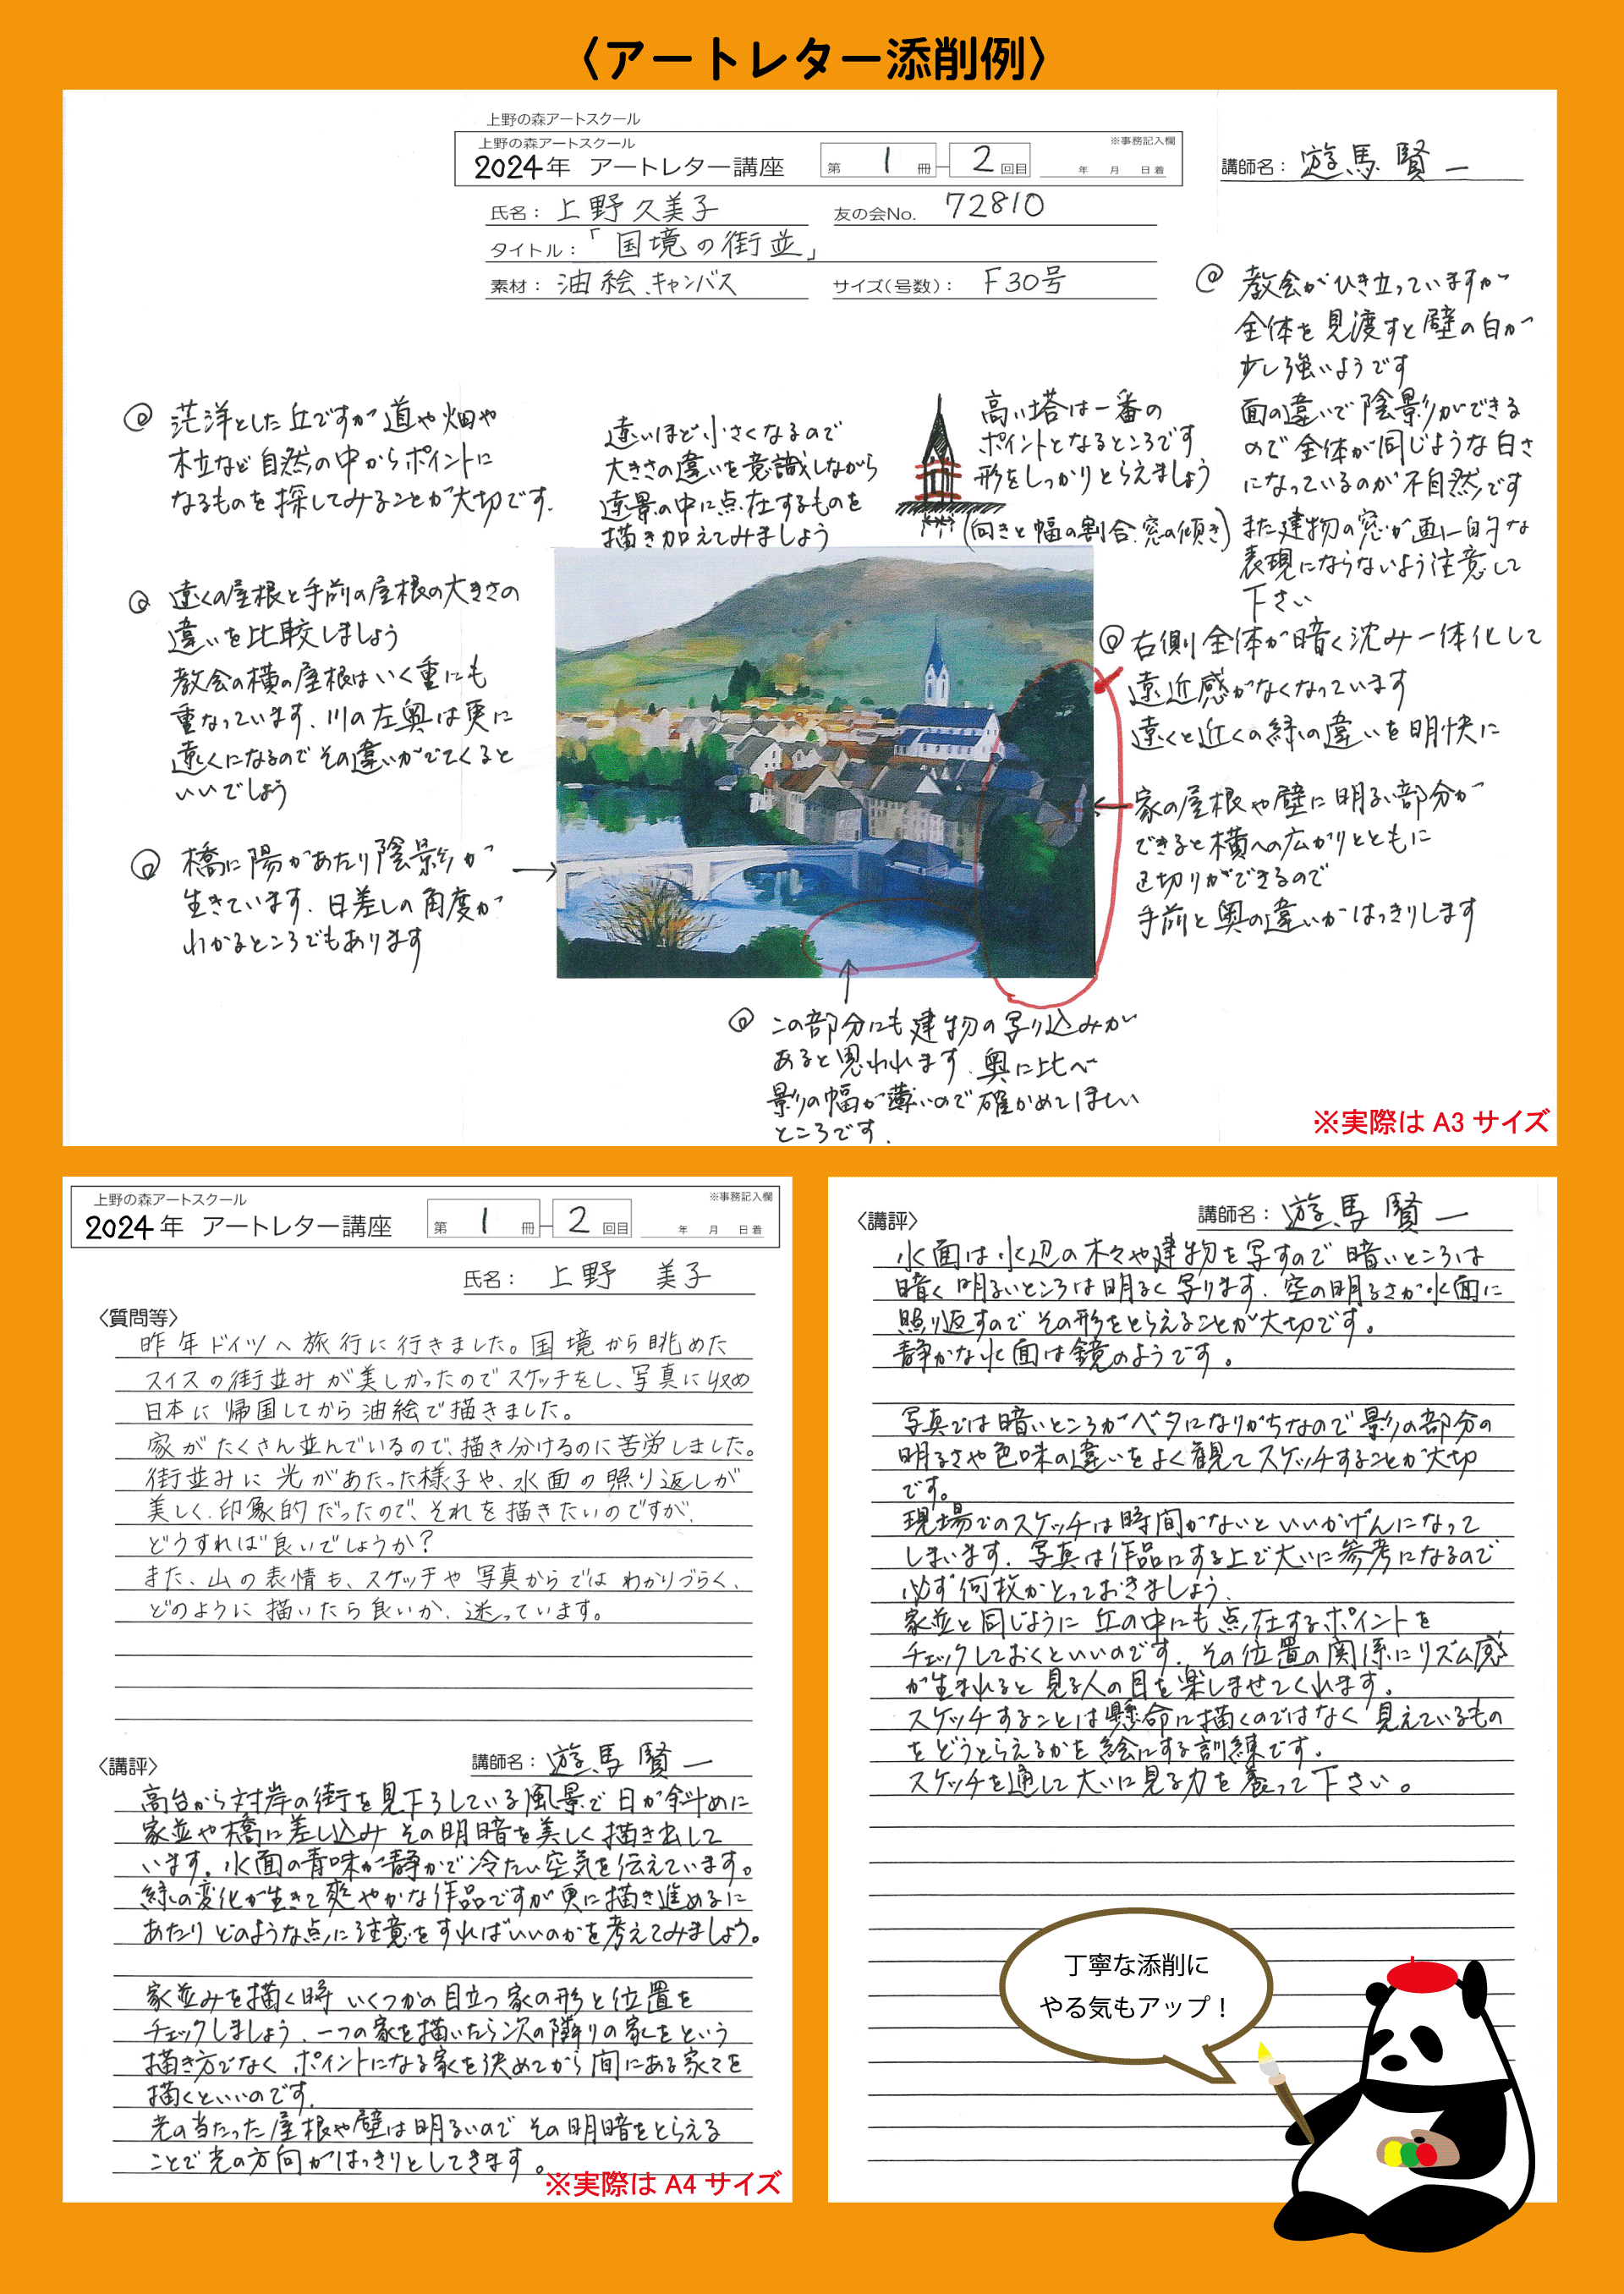 〈アートレター添削例〉
上野の森アートスクール
上野の森アートスクール
2024年 アートレター講座
第 1 冊 2 回目
※事務記入欄
年 月 日着
講師名: 遊馬 賢一
氏名: 上野久美子
友の会No. 72810
タイトル:「国境の街並」
素材: 油絵、キャンバス
サイズ(号数): F30号
◎ 茫洋とした丘ですが道や畑や
木立など自然の中からポイントに
なるものを探してみることが大切です.
遠いほど小さくなるので
大きさの違いを意識しながら
遠景の中に点在するものを
描き加えてみましょう
高い塔は一番の
ポイントとなるところです
形をしっかりとらえましょう
(向きと幅の割合、窓の傾き)
◎ 教会がひき立っていますが
全体を見渡すと壁の白が
少し強いようです
面の違いで陰影ができる
ので全体が同じような白さ
になっているのが不自然です
また建物の窓が画一的な
表現にならないよう注意して
下さい
◎ 遠くの屋根と手前の屋根の大きさの
違いを比較しましょう
教会の横の屋根はいく重にも
重なっています、川の左奥は更に
遠くになるのでその違いがでてくると
いいでしょう
◎ 橋に陽があたり陰影が
生きています、日差しの角度が
わかるところでもあります
◎ 右側全体が暗く沈み一体化して
遠近感がなくなっています
遠くと近くの緑の違いを明快に
家の屋根や壁に明るい部分が
できると横への広がりとともに
区切りができるので
手前と奥の違いがはっきりします
◎ この部分にも建物の写り込みが
あると思われます、奥に比べ
影の幅が薄いので確かめてほしい
ところです.
※実際は A3 サイズ
上野の森アートスクール
2024年 アートレター講座
第 1 冊 2 回目
※事務記入欄
年 月 日着
氏名: 上野 美子
〈質問等〉
昨年ドイツへ旅行に行きました。国境から眺めた
スイスの街並みが美しかったのでスケッチをし、写真に収め
日本に帰国してから油絵で描きました。
家がたくさん並んでいるので、描き分けるのに苦労しました。
街並みに光があたった様子や、水面の照り返しが
美しく、印象的だったので、それを描きたいのですが、
どうすれば良いでしょうか?
また、山の表情も、スケッチや写真からではわかりづらく、
どのように描いたら良いか、迷っています。
〈講評〉
講師名: 遊馬 賢一
高台から対岸の街を見下ろしている風景で日が斜めに
家並や橋に差し込みその明暗を美しく描き出して
います。水面の青味が静かで冷たい空気を伝えています。
緑の変化が生きて爽やかな作品ですが更に描き進めるに
あたりどのような点に注意をすればいいのかを考えてみましょう。
家並みを描く時いくつかの目立つ家の形と位置を
チェックしましょう、一つの家を描いたら次の隣りの家をという
描き方でなくポイントになる家を決めてから間にある家々を
描くといいのです.
光の当たった屋根や壁は明るいのでその明暗をとらえる
ことで光の方向がはっきりとしてきます。
※実際は A4 サイズ
〈講評〉
講師名: 遊馬 賢一
水面は水辺の木々や建物を写すので暗いところは
暗く明るいところは明るく写ります、空の明るさが水面に
照り返すのでその形をとらえることが大切です。
静かな水面は鏡のようです。
写真では暗いところがベタになりがちなので影の部分の
明るさや色味の違いをよく観てスケッチすることが大切
です。
現場でのスケッチは時間がないといいかげんになって
しまいます、写真は作品にする上で大いに参考になるので
必ず何枚かとっておきましょう、
家並と同じように丘の中にも点在するポイントを
チェックしておくといいのです、その位置の関係にリズム感
が生まれると見る人の目を楽しませてくれます。
スケッチすることは懸命に描くのではなく見えているもの
をどうとらえるかを絵にする訓練です。
スケッチを通して大いに見る力を養って下さい。
丁寧な添削に
やる気もアップ!